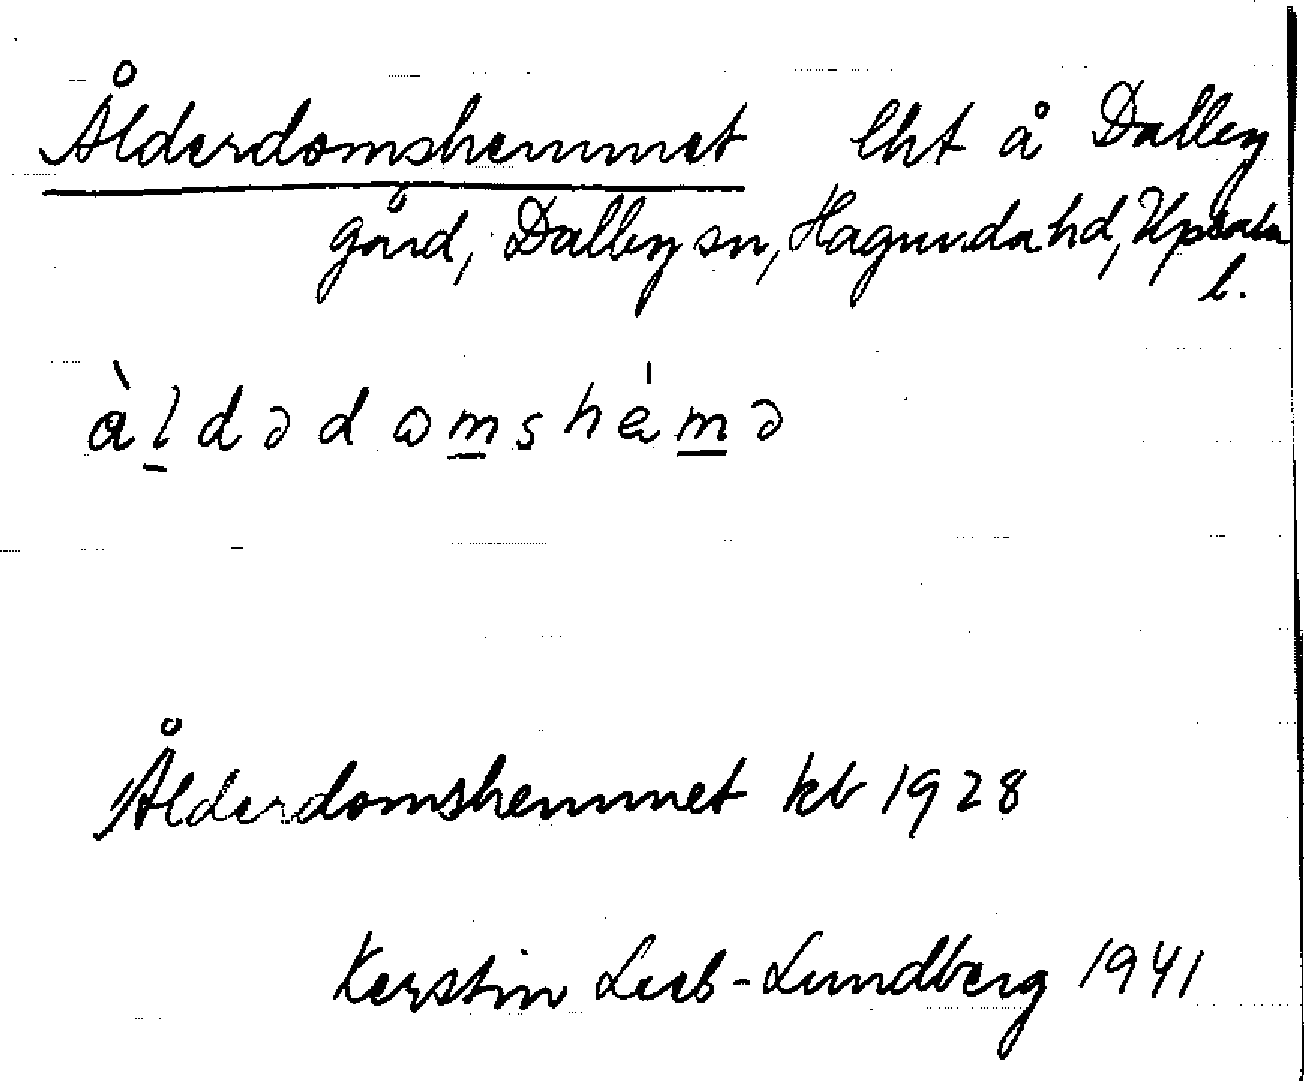 Ålderdomshemmet lht å Dalby
gård, Dalby sn, Hagunda hd, Upsala
l.
àldədωmshémə
Ålderdomshemmet kb 1928
Kerstin Leeb-Lundberg 1941